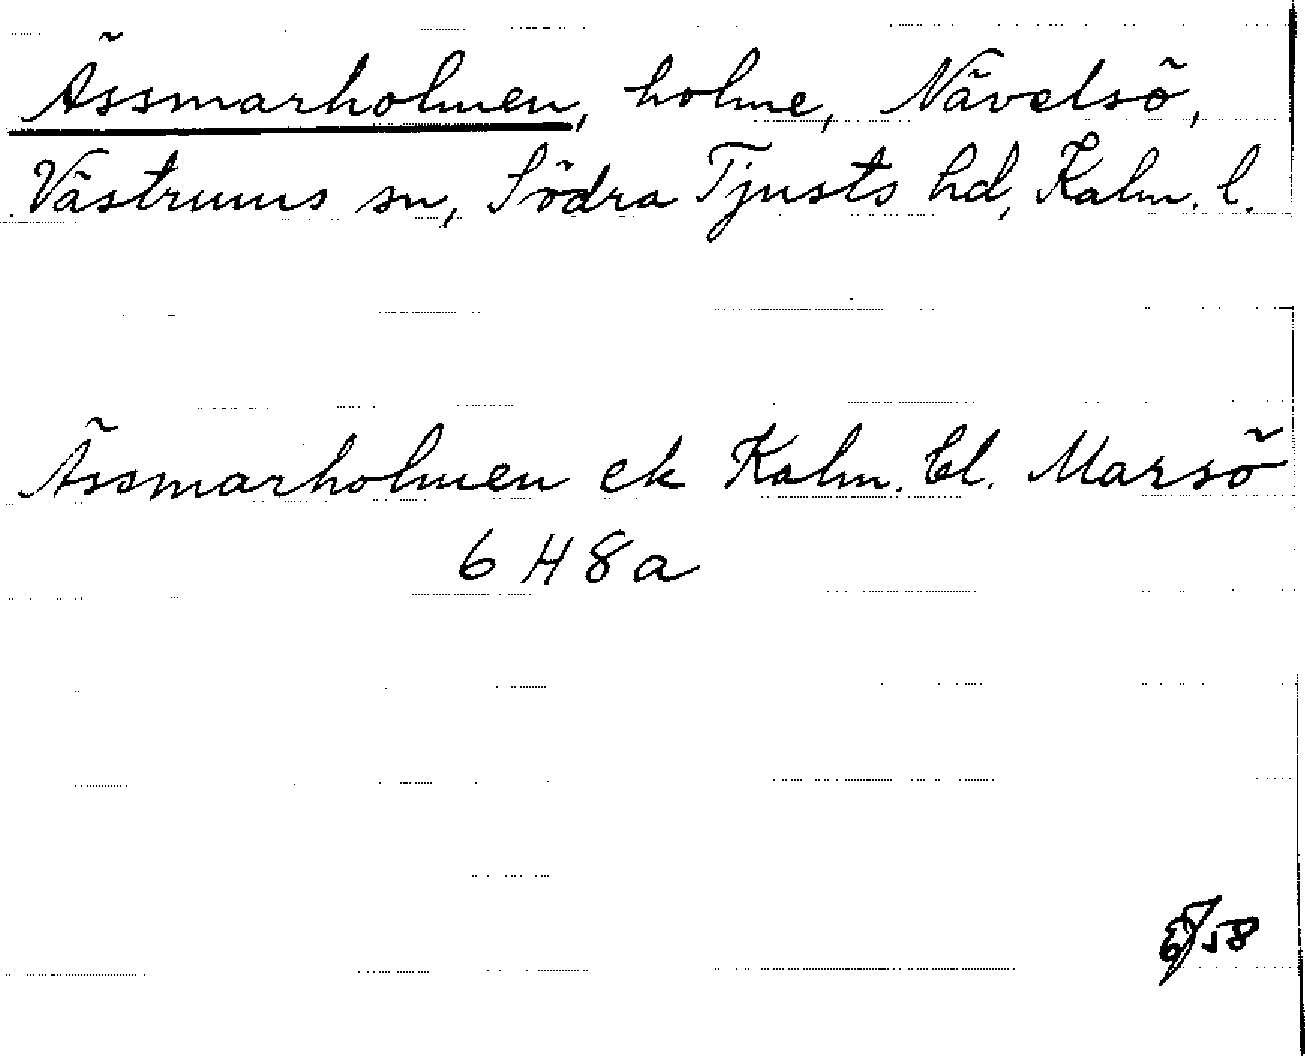 Ässmarholmen, holme, Nävelsö,
Västrums sn, Södra Tjusts hd, Kalm. l.
Ässmarholmen ek Kalm. bl. Marsö
6 H 8 a
58